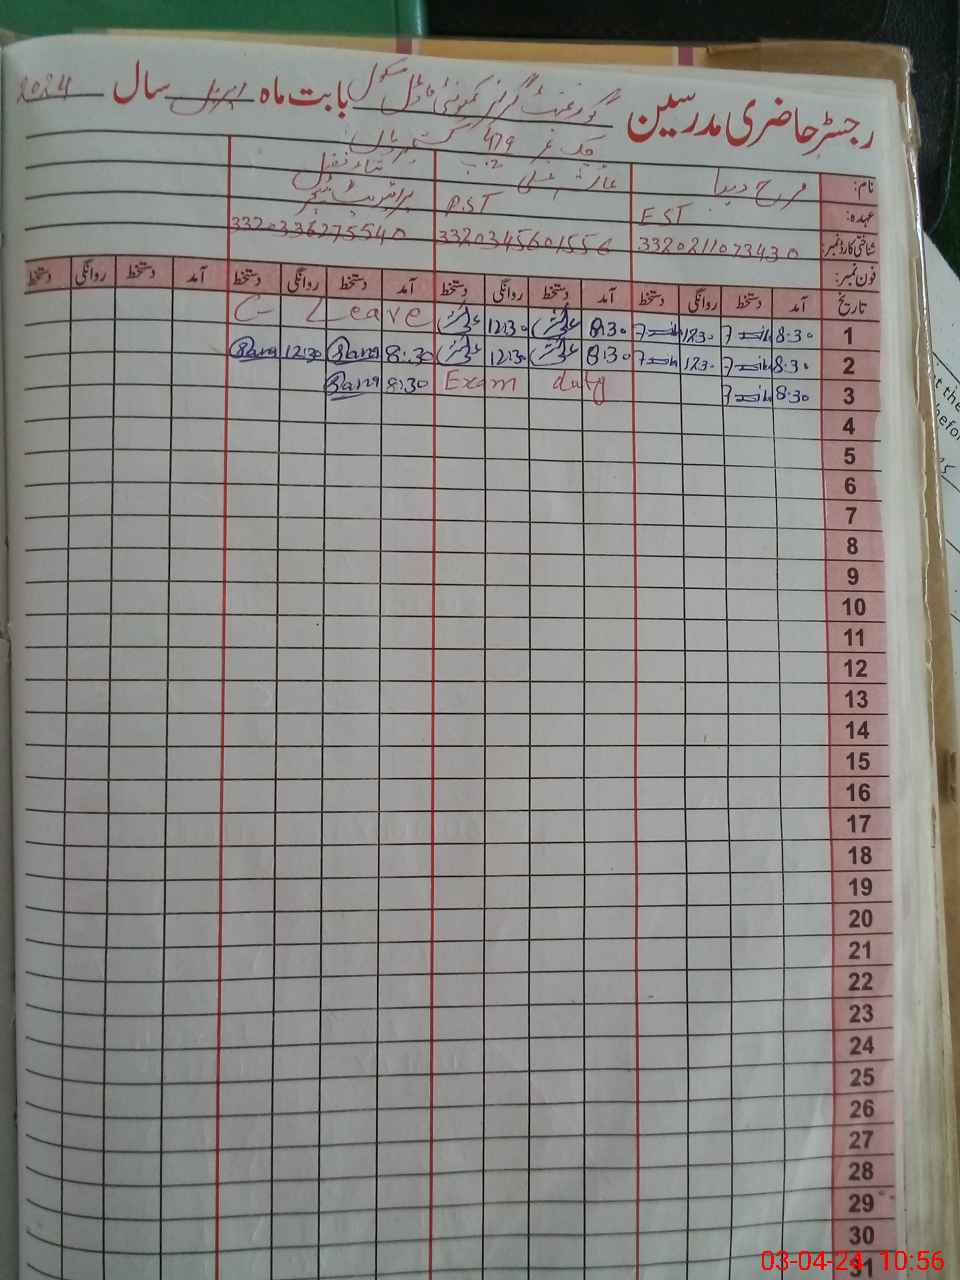 رجسٹر حاضری مدرسین گورنمنٹ گرلز کمیونٹی ماڈل سکول بابت ماہ اپریل سال 2024
چک نمبر 479 ج ب
نام: فرح دیبا عائشہ
عہدہ: EST PST پرائیویٹ ٹیچر
شناختی کارڈ نمبر: 3320211073430 3320345601556 3320336275540
فون نمبر:
تاریخ آمد دستخط روانگی دستخط آمد دستخط روانگی دستخط آمد دستخط روانگی دستخط آمد دستخط روانگی دستخط
1 8:30 12:30 8:30 12:30 C- Leave
2 8:30 12:30 8:30 12:30 8:30 12:30
3 8:30 Exam duty 8:30
4
5
6
7
8
9
10
11
12
13
14
15
16
17
18
19
20
21
22
23
24
25
26
27
28
29
30
31
03-04-24 10:56